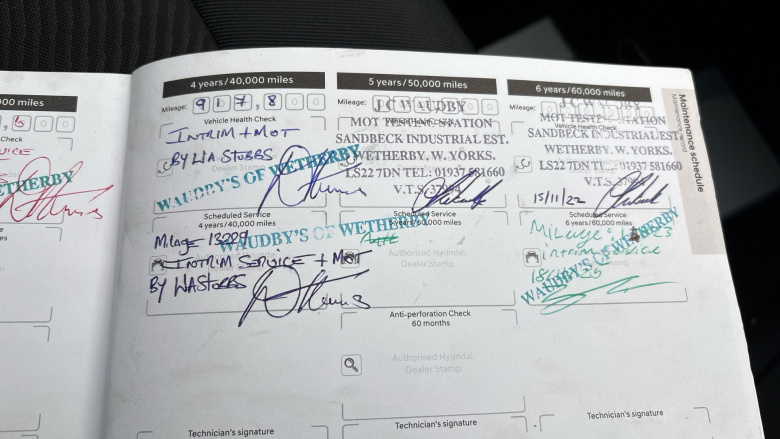 000 miles
Check
THERBY
4 years/40,000 miles
Mileage: 9 1 7, 8 0 0
Vehicle Health Check
INTRIM + MOT
BY WA STUBBS
WAUDBY'S OF WETHERBY
Scheduled Service
4 years/40,000 miles
Milage 13229
WAUDBY'S OF WETHERBY
INTRIM SERVICE + MOT
BY WASTUBBS
5 years/50,000 miles
Mileage:
J C WAUDBY
MOT TESTING STATION
SANDBECK INDUSTRIAL EST.
WETHERBY, W. YORKS.
LS22 7DN TEL: 01937 581660
V.T.S.
Scheduled Service
5 years/50,000 miles
Authorised Hyundai
Dealer Stamp
Anti-perforation Check
60 months
Authorised Hyundai
Dealer Stamp
6 years/60,000 miles
Mileage:
J C WAUDBY
MOT TESTING STATION
Vehicle Health Check
SANDBECK INDUSTRIAL EST.
WETHERBY, W. YORKS.
LS22 7DN TEL: 01937 581660
V.T.S.
15/11/22
Scheduled Service
6 years/60,000 miles
Mileage:
intrim service
WAUDBY'S OF WETHERBY
Technician's signature
Technician's signature
Technician's signature
Maintenance schedule
Maintenance record